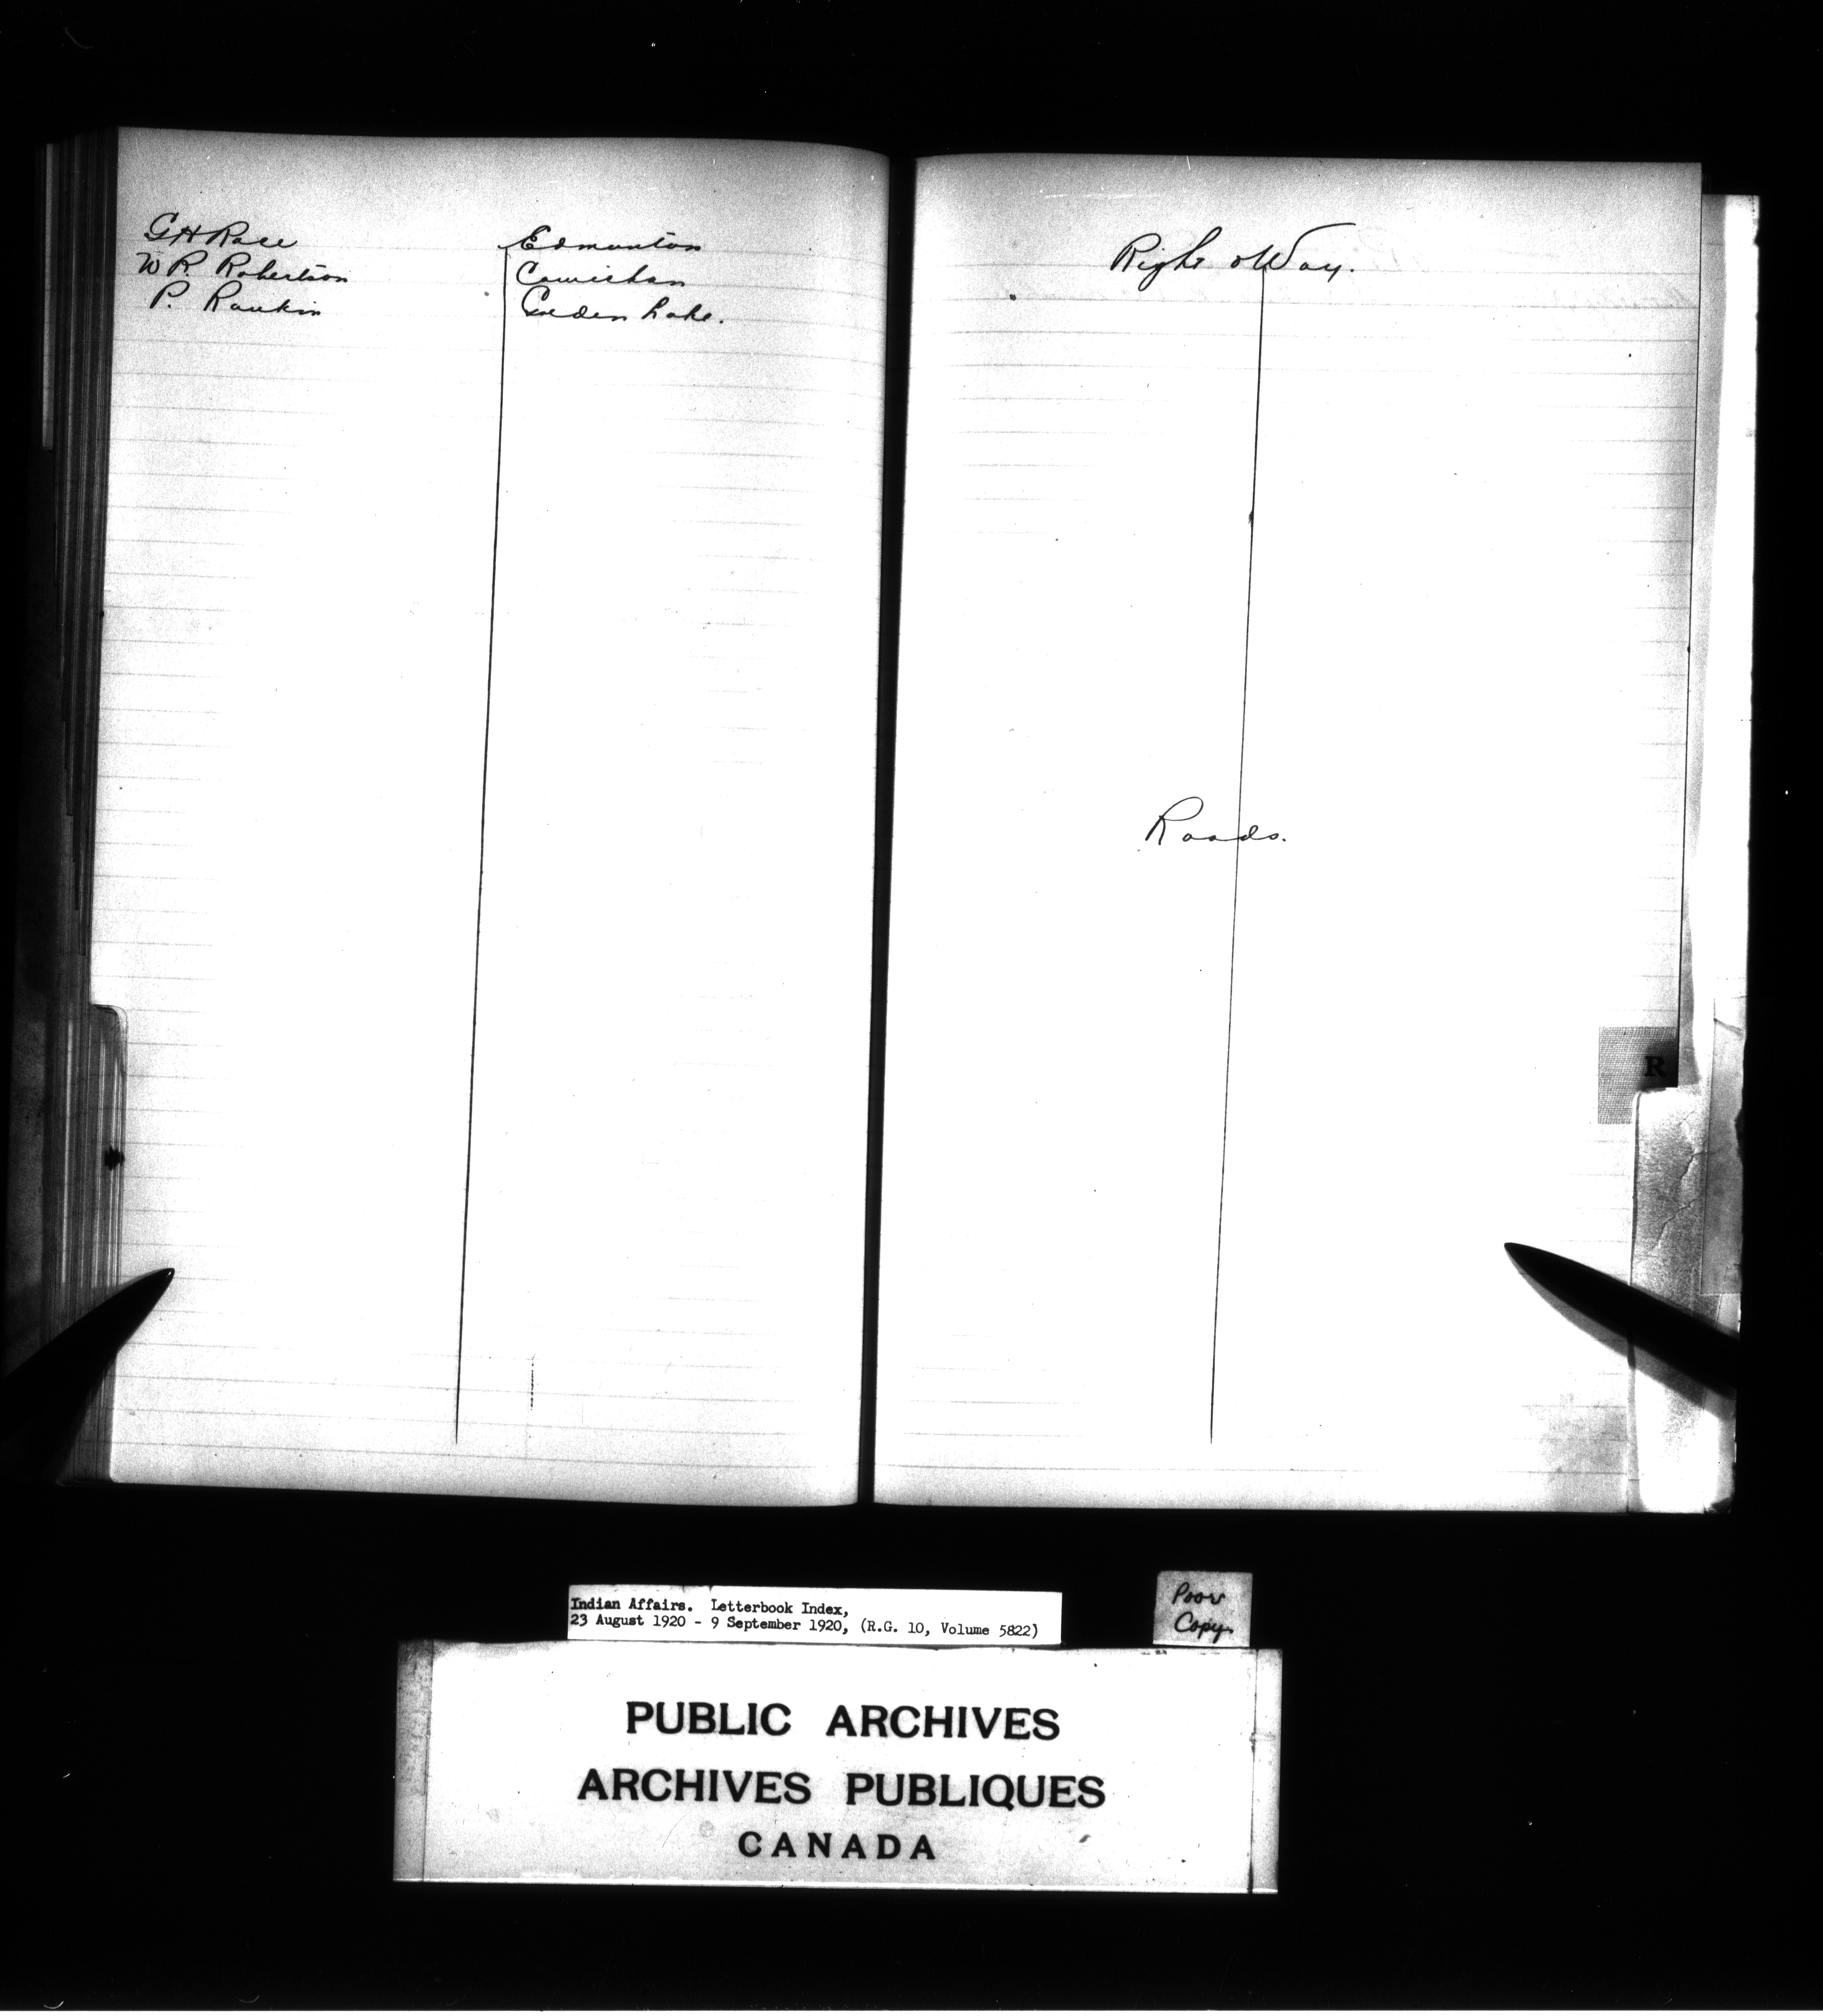 G H Race Edmonton
W R. Robertson Cowichan
P. Rankin Golden Lake.
Right o Way.
Roads.
R
Indian Affairs. Letterbook Index,
23 August 1920 - 9 September 1920, (R.G. 10, Volume 5822)
Poor
Copy.
PUBLIC ARCHIVES
ARCHIVES PUBLIQUES
CANADA